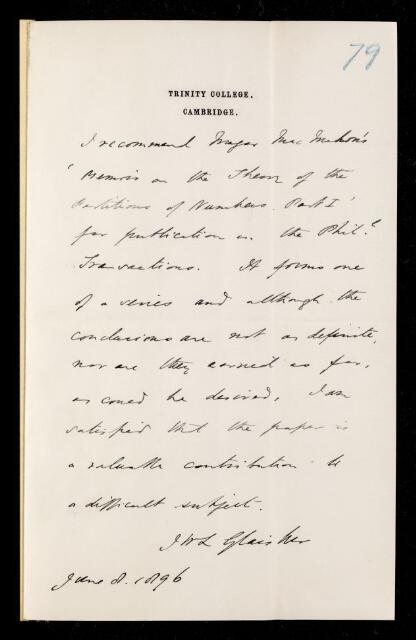 79
TRINITY COLLEGE.
CAMBRIDGE.
I recommend Major Mac Mahon's
'Memoir on the Theory of the
Partitions of Numbers. Part I'
for publication in the Phil.l
Transactions. It forms one
of a series and although the
conclusions are not as definite,
nor are they carried as far,
as could be desired, I am
satisfied that the paper is
a valuable contribution to
a difficult subject.
J W L Glaisher
June 8. 1896